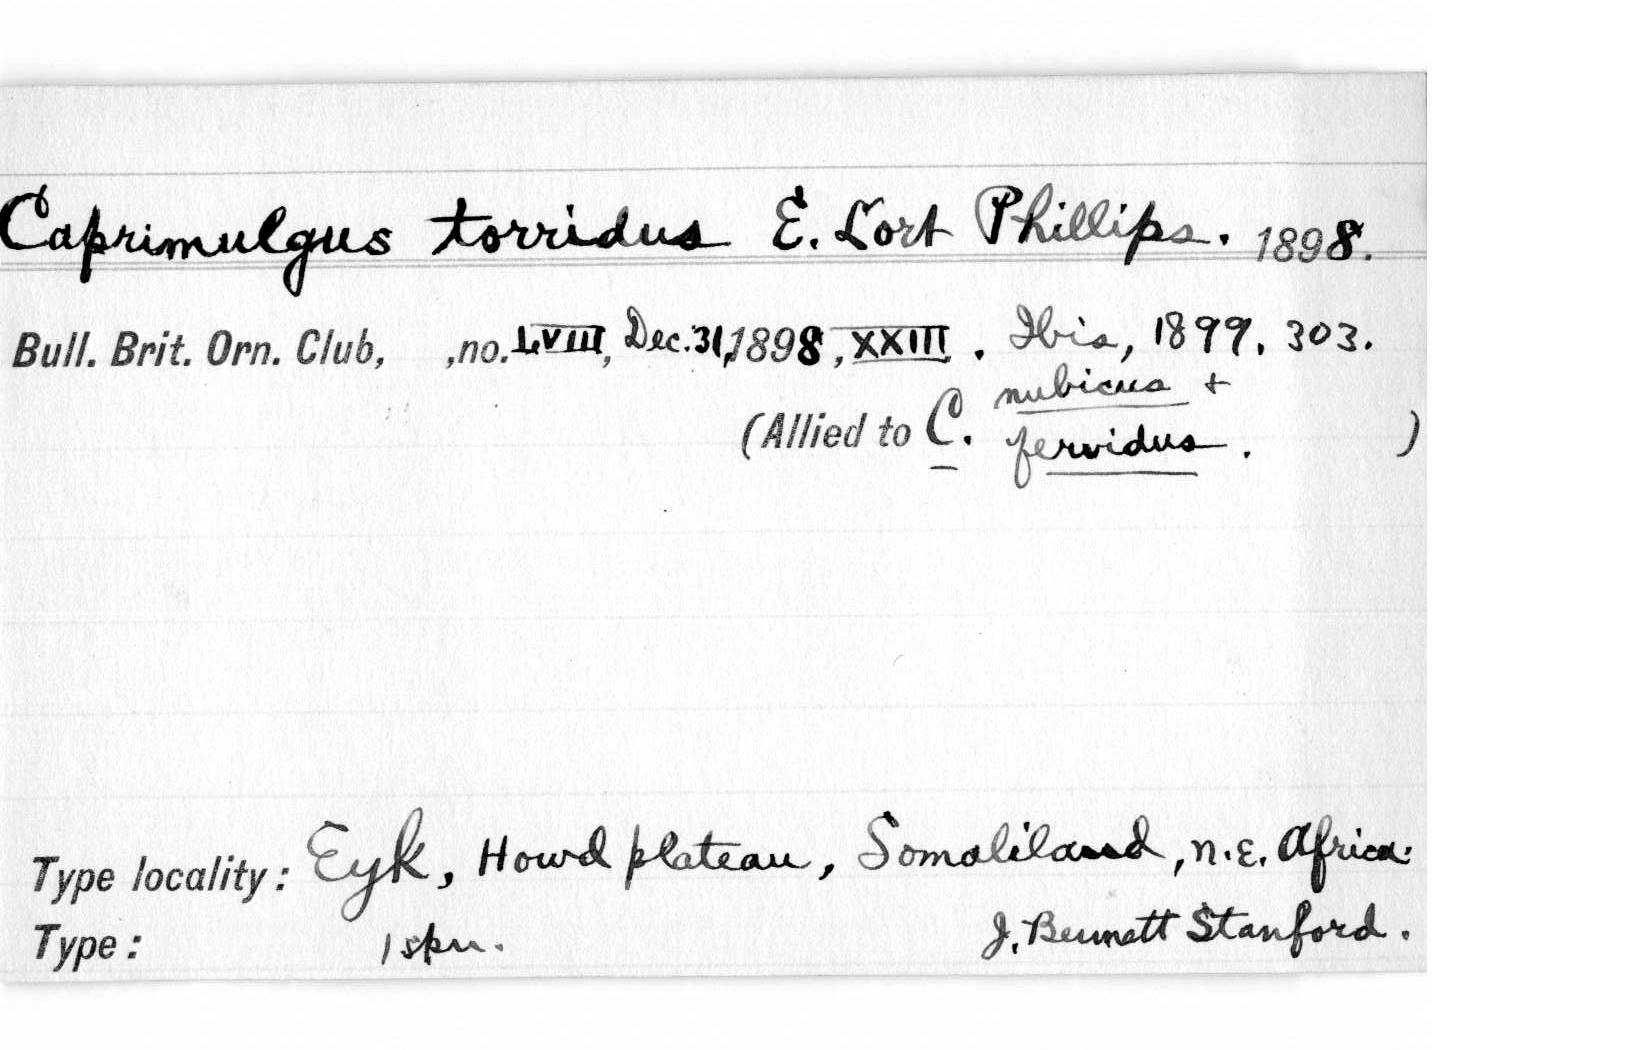 Caprimulgus torridus E. Lort Phillips. 1898.
Bull. Brit. Orn. Club, ,no. LVIII, Dec. 31, 1898, XXIII. Ibis, 1899, 303.
(Allied to C. nubicus +
fervidus. )
Type locality: Eyk, Howd plateau, Somaliland, N.E. Africa:
Type: 1 spn. J. Bennett Stanford.